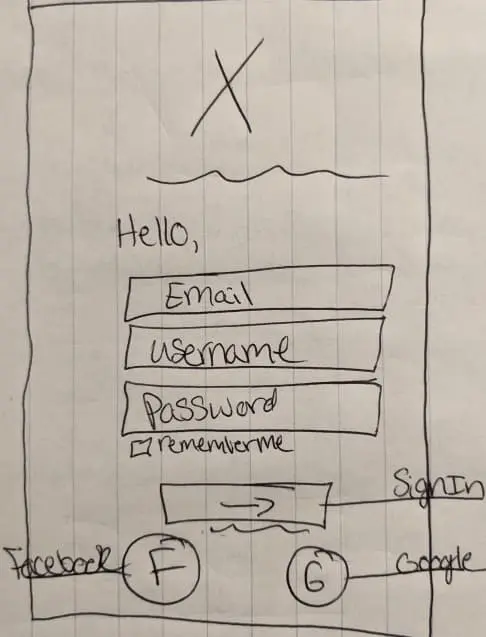 X
Hello,
Email
username
Password
rememberme
SignIn
→
Facebook
F
G
Google